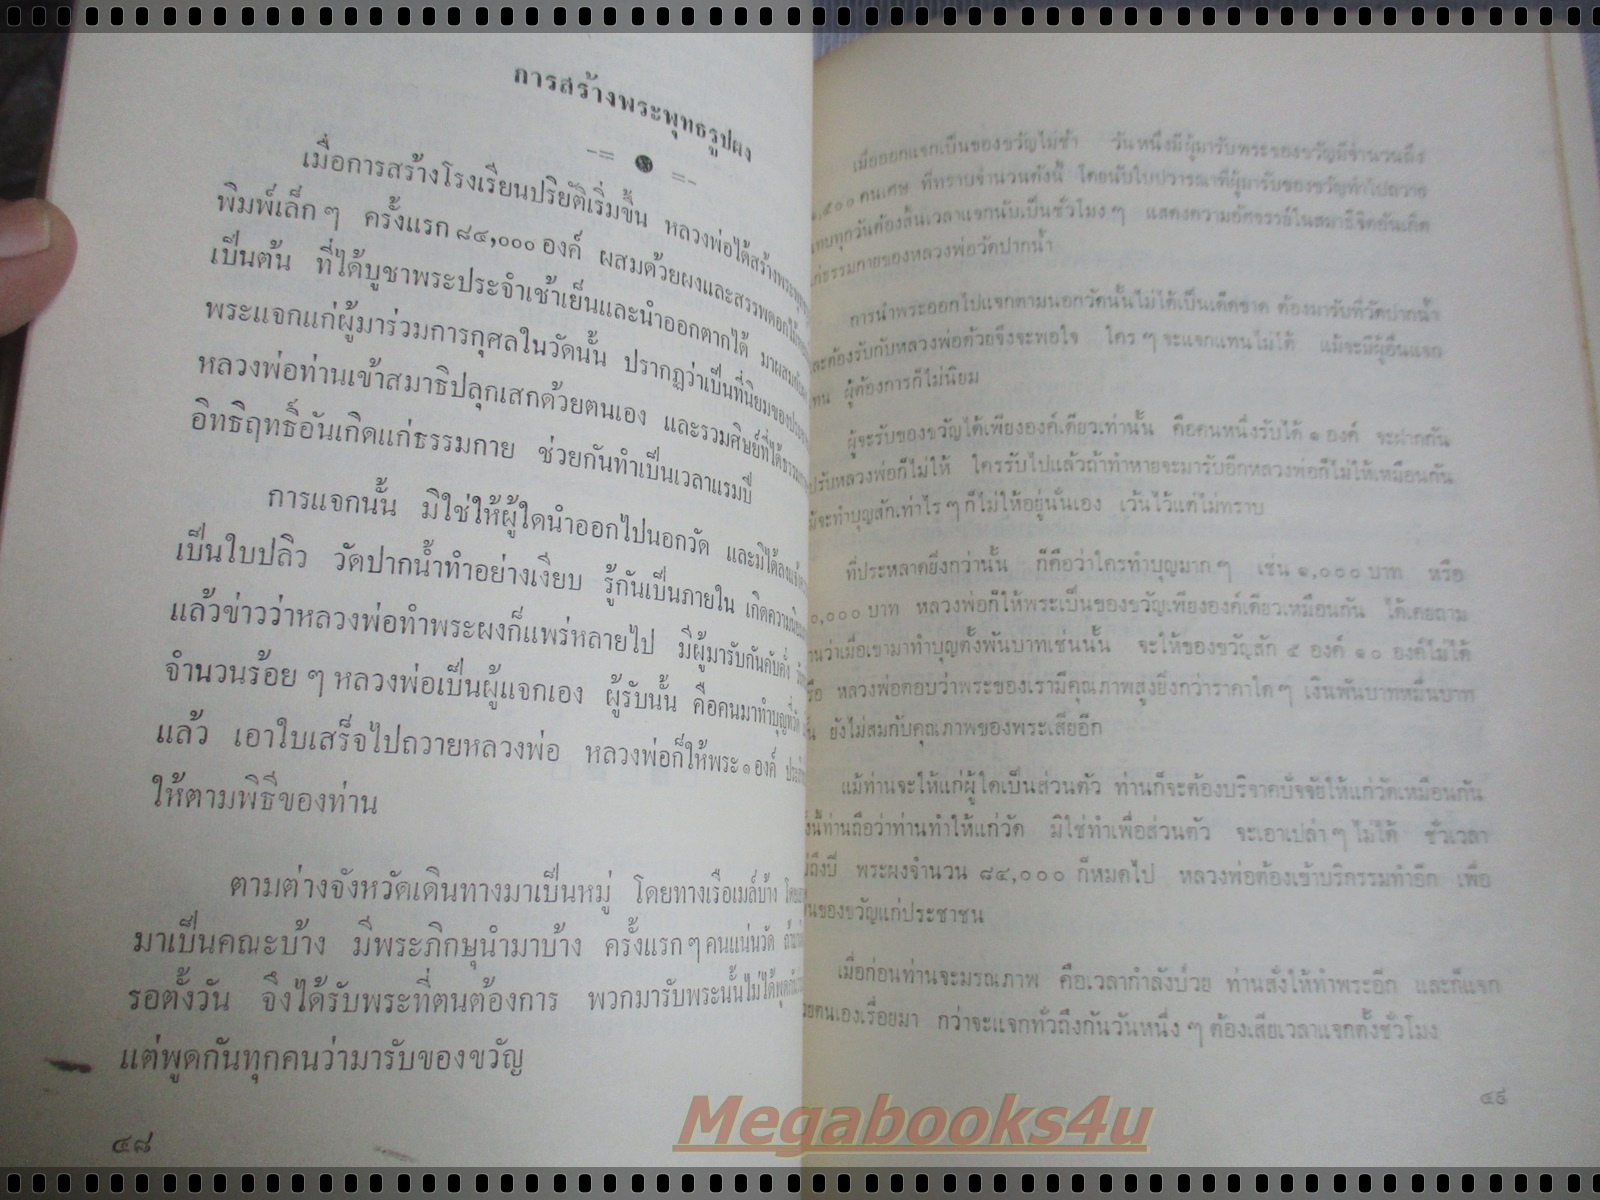 การสร้างพระพุทธรูปผง
เมื่อการสร้างโรงเรียนปริยัติเริ่มขึ้น หลวงพ่อได้สร้าง
พิมพ์เล็ก ๆ ครั้งแรก ๘๔,๐๐๐ องค์ ผสมด้วยผงและสรรพดอกไม้
เป็นต้น ที่ได้บูชาพระประจำเช้าเย็นและนำออกตากได้
พระแจกแก่ผู้มาร่วมการกุศลในวัดนั้น ปรากฏว่าเป็นที่นิยมของ
หลวงพ่อท่านเข้าสมาธิปลุกเสกด้วยตนเอง และรวมศิษย์ที่ได้
อิทธิฤทธิ์อันเกิดแก่ธรรมกาย ช่วยกันทำเป็นเวลาแรมปี
การแจกนั้น มิใช่ให้ผู้ใดนำออกไปนอกวัด และมิได้
เป็นใบปลิว วัดปากน้ำทำอย่างเงียบ รู้กันเป็นภายใน เกิดความ
แล้วข่าวว่าหลวงพ่อทำพระผงก็แพร่หลายไป มีผู้มารับกันคับคั่ง
จำนวนร้อย ๆ หลวงพ่อเป็นผู้แจกเอง ผู้รับนั้น คือคนมาทำบุญที่วัด
แล้ว เอาใบเสร็จไปถวายหลวงพ่อ หลวงพ่อก็ให้พระ ๑ องค์
ให้ตามพิธีของท่าน
ตามต่างจังหวัดเดินทางมาเป็นหมู่ โดยทางเรือเมล์บ้าง
มาเป็นคณะบ้าง มีพระภิกษุนำมาบ้าง ครั้งแรก ๆ คนแน่นวัด
รอตั้งวัน จึงได้รับพระที่ตนต้องการ พวกมารับพระนั้นไม่ได้พูด
แต่พูดกันทุกคนว่ามารับของขวัญ
๔๘
เมื่อออกแจกเป็นของขวัญไม่ช้า วันหนึ่งมีผู้มารับพระของขวัญมีจำนวนถึง
๕๐๐ คนเศษ ที่ทราบจำนวนดังนี้ โดยนับใบปวารณาที่ผู้มารับของขวัญทำไปถวาย
ทุกวันต้องสิ้นเวลาแจกนับเป็นชั่วโมง ๆ แสดงความอัศจรรย์ในสมาธิจิตอันเกิด
ธรรมกายของหลวงพ่อวัดปากน้ำ
การนำพระออกไปแจกตามนอกวัดนั้นไม่ได้เป็นเด็ดขาด ต้องมารับที่วัดปากน้ำ
ต้องรับกับหลวงพ่อด้วยจึงจะพอใจ ใคร ๆ จะแจกแทนไม่ได้ แม้จะมีผู้อื่นแจก
แทน ผู้ต้องการก็ไม่นิยม
ผู้จะรับของขวัญได้เพียงองค์เดียวเท่านั้น คือคนหนึ่งรับได้ ๑ องค์ จะฝากกัน
หลวงพ่อก็ไม่ให้ ใครรับไปแล้วถ้าทำหายจะมารับอีกหลวงพ่อก็ไม่ให้เหมือนกัน
จะทำบุญสักเท่าไร ๆ ก็ไม่ให้อยู่นั่นเอง เว้นไว้แต่ไม่ทราบ
ที่ประหลาดยิ่งกว่านั้น ก็คือว่าใครทำบุญมาก ๆ เช่น ๑,๐๐๐ บาท หรือ
๐,๐๐๐ บาท หลวงพ่อก็ให้พระเป็นของขวัญเพียงองค์เดียวเหมือนกัน ได้เคยถาม
ว่าเมื่อเขามาทำบุญตั้งพันบาทเช่นนั้น จะให้ของขวัญสัก ๕ องค์ ๑๐ องค์ไม่ได้
หลวงพ่อตอบว่าพระของเรามีคุณภาพสูงยิ่งกว่าราคาใด ๆ เงินพันบาทหมื่นบาท
ยังไม่สมกับคุณภาพของพระเสียอีก
แม้ท่านจะให้แก่ผู้ใดเป็นส่วนตัว ท่านก็จะต้องบริจาคปัจจัยให้แก่วัดเหมือนกัน
ท่านถือว่าท่านทำให้แก่วัด มิใช่ทำเพื่อส่วนตัว จะเอาเปล่า ๆ ไม่ได้ ชั่วเวลา
ถึงปี พระผงจำนวน ๘๔,๐๐๐ ก็หมดไป หลวงพ่อต้องเข้าบริกรรมทำอีก เพื่อ
ของขวัญแก่ประชาชน
เมื่อก่อนท่านจะมรณภาพ คือเวลากำลังป่วย ท่านสั่งให้ทำพระอีก และก็แจก
ตนเองเรื่อยมา กว่าจะแจกทั่วถึงกันวันหนึ่ง ๆ ต้องเสียเวลาแจกตั้งชั่วโมง
๔๙
Megabooks4u